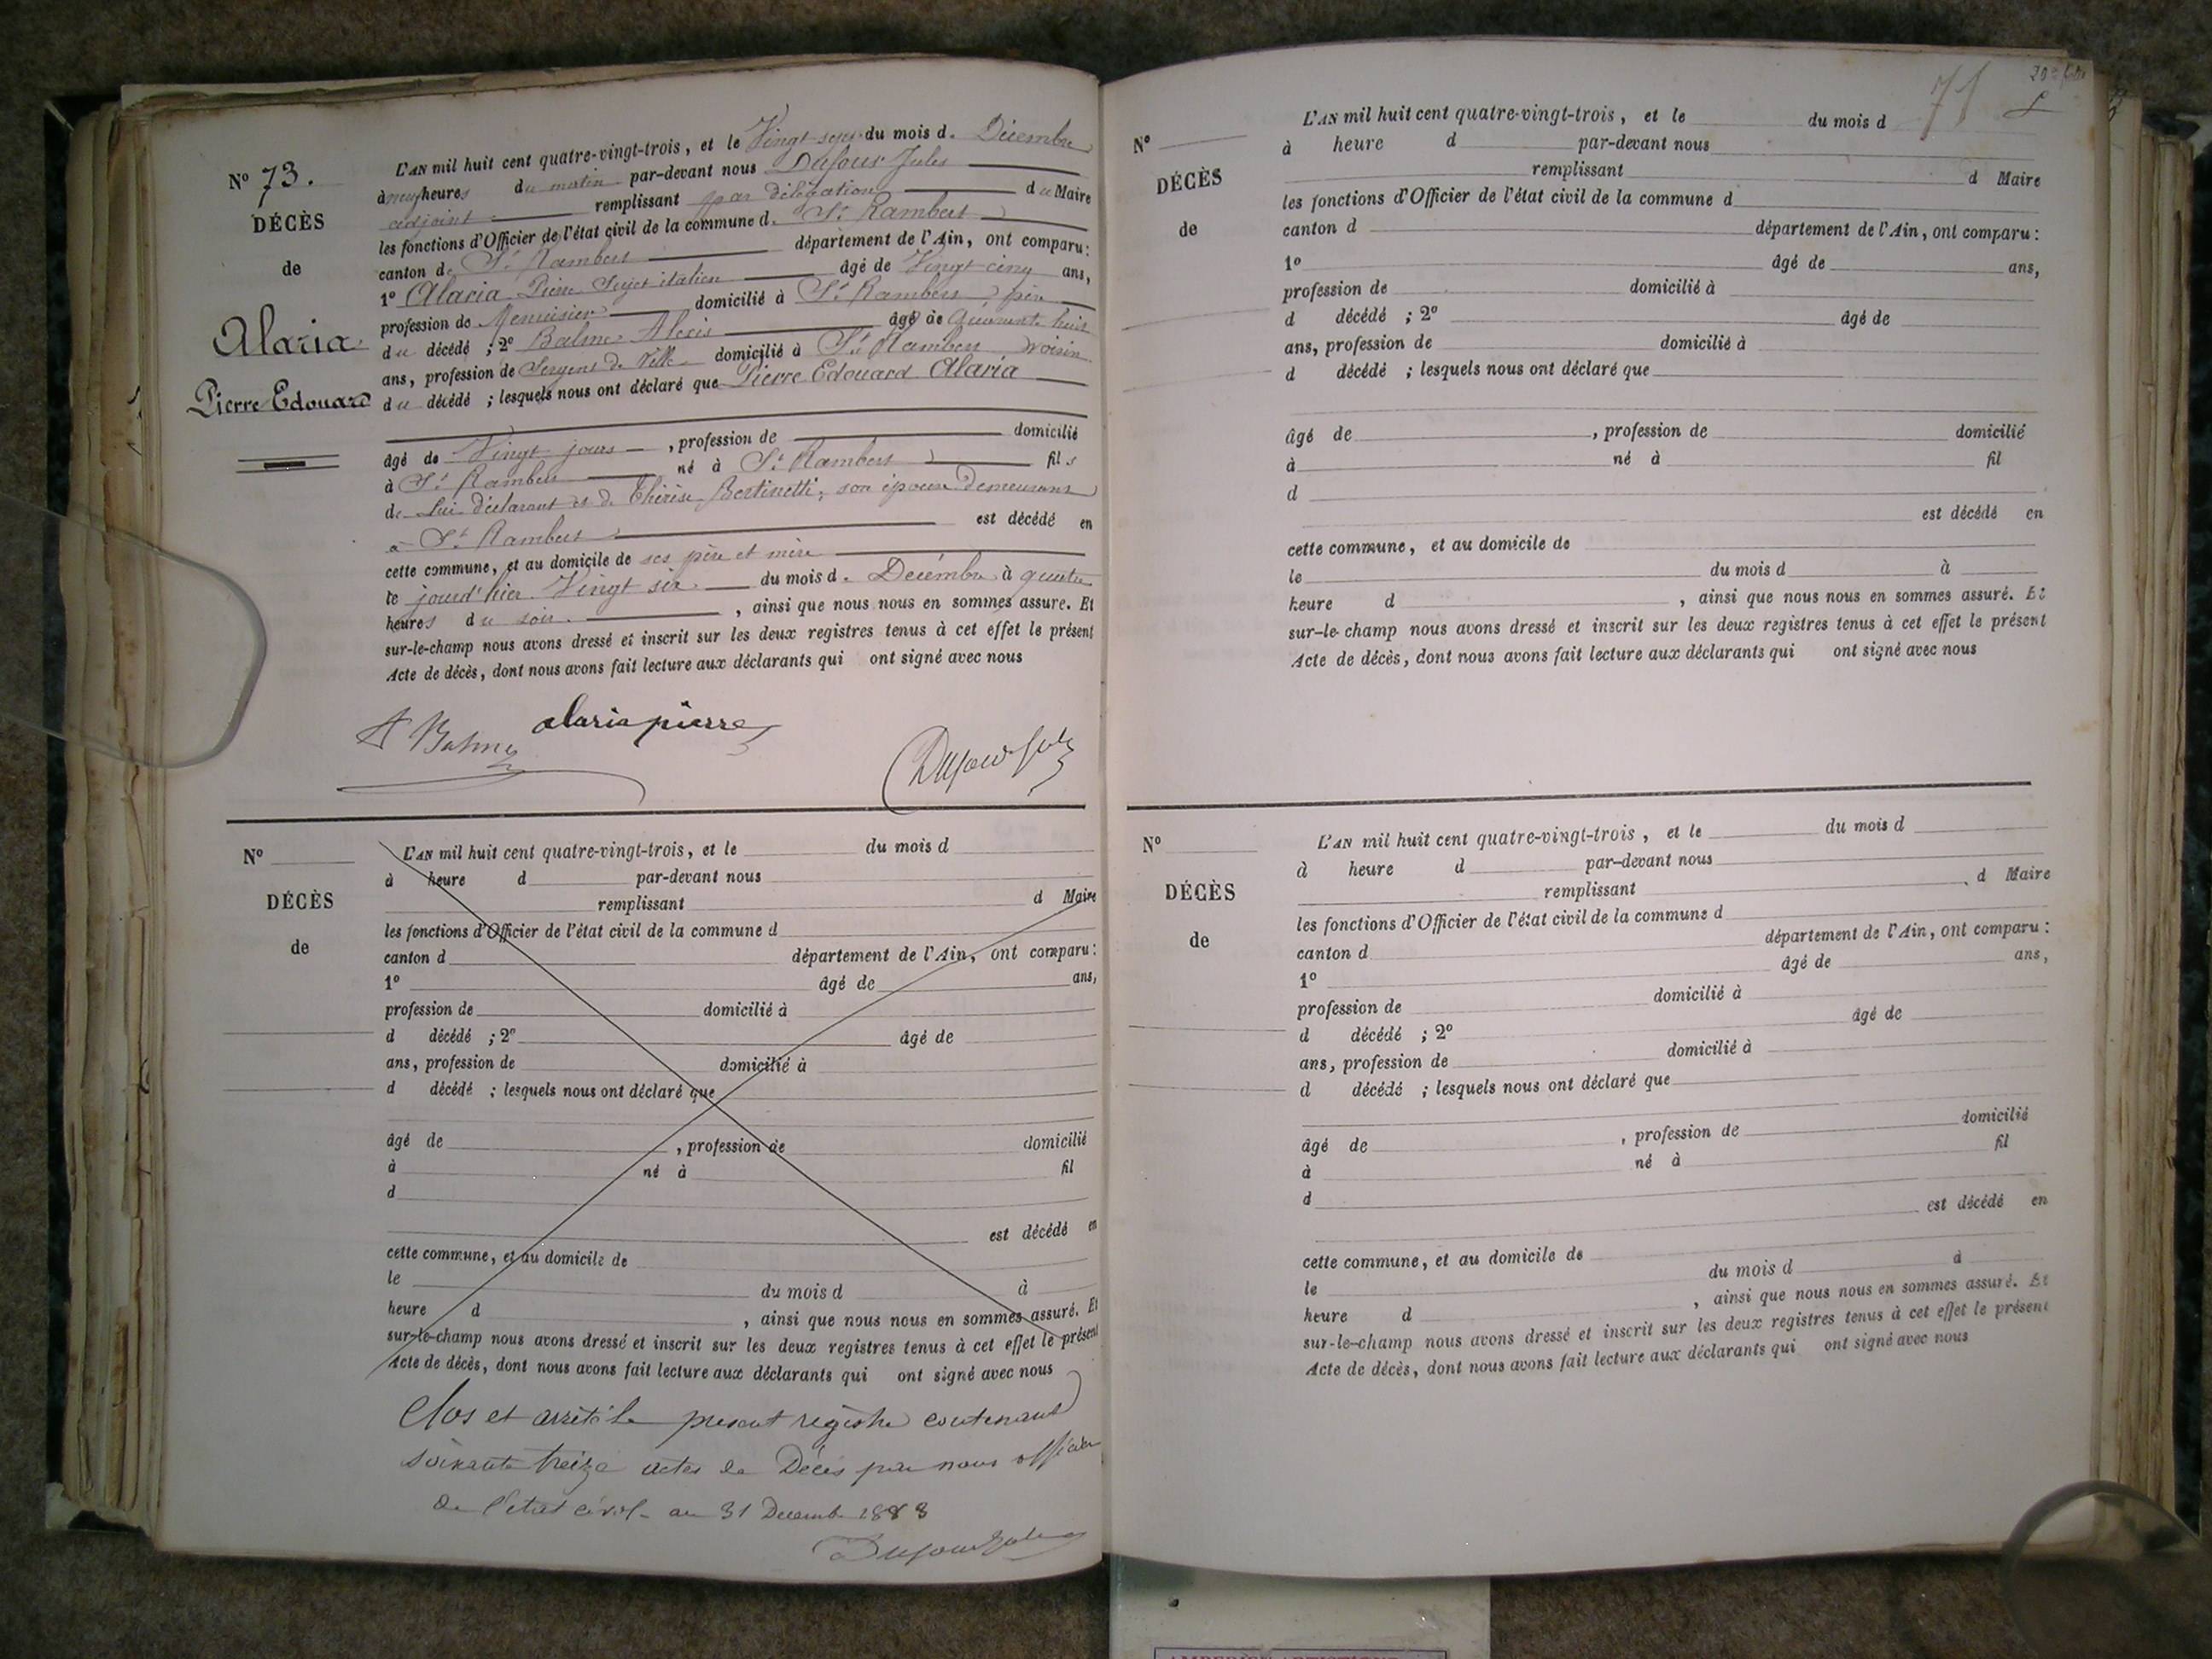 Nº 73.
DÉCÈS
de
Alaria
Pierre Edouard
L'AN mil huit cent quatre-vingt-trois, et le Vingt sept du mois d. Décembre
à neuf heures du matin par-devant nous Dufour Jules
adjoint remplissant par délégation du Maire
les fonctions d'Officier de l'état civil de la commune d. St Rambert
canton de St Rambert département de l'Ain, ont comparu:
1º Alaria Pierre Sujet italien âgé de Vingt cinq ans,
profession de Menuisier domicilié à St Rambert père
du décédé ; 2º Balme Alexis âgé de Quarante huit
ans, profession de Sergent de Ville domicilié à St Rambert voisin
du décédé ; lesquels nous ont déclaré que Pierre Edouard Alaria
âgé de Vingt jours , profession de domicilié
à St Rambert né à St Rambert fils
de lui déclarant et de Thérèse Bertinetti, son épouse demeurant
à St Rambert est décédé en
cette commune, et au domicile de ses père et mère
le jourd'hier Vingt six du mois d. Décembre à quatre
heures du soir. , ainsi que nous nous en sommes assuré. Et
sur-le-champ nous avons dressé et inscrit sur les deux registres tenus à cet effet le présent
Acte de décès, dont nous avons fait lecture aux déclarants qui ont signé avec nous
A Balme alaria pierre Dufour Jules
Nº
DÉCÈS
de
L'AN mil huit cent quatre-vingt-trois, et le du mois d
à heure d par-devant nous
remplissant d Maire
les fonctions d'Officier de l'état civil de la commune d
canton d département de l'Ain, ont comparu:
1º âgé de ans,
profession de domicilié à
d décédé ; 2º âgé de
ans, profession de domicilié à
d décédé ; lesquels nous ont déclaré que
âgé de , profession de domicilié
à né à fil
d
est décédé en
cette commune, et au domicile de
le du mois d à
heure d , ainsi que nous nous en sommes assuré. Et
sur-le-champ nous avons dressé et inscrit sur les deux registres tenus à cet effet le présent
Acte de décès, dont nous avons fait lecture aux déclarants qui ont signé avec nous
Clos et arrêté le present registre contenant
soixante treize actes de Décès par nous officier
de l'etat civil au 31 Decemb 1883
Dufour Jules
71
Nº
DÉCÈS
de
L'AN mil huit cent quatre-vingt-trois, et le du mois d
à heure d par-devant nous
remplissant d Maire
les fonctions d'Officier de l'état civil de la commune d
canton d département de l'Ain, ont comparu:
1º âgé de ans,
profession de domicilié à
d décédé ; 2º âgé de
ans, profession de domicilié à
d décédé ; lesquels nous ont déclaré que
âgé de , profession de domicilié
à né à fil
d
est décédé en
cette commune, et au domicile de
le du mois d à
heure d , ainsi que nous nous en sommes assuré. Et
sur-le-champ nous avons dressé et inscrit sur les deux registres tenus à cet effet le présent
Acte de décès, dont nous avons fait lecture aux déclarants qui ont signé avec nous
Nº
DÉCÈS
de
L'AN mil huit cent quatre-vingt-trois, et le du mois d
à heure d par-devant nous
remplissant d Maire
les fonctions d'Officier de l'état civil de la commune d
canton d département de l'Ain, ont comparu:
1º âgé de ans,
profession de domicilié à
d décédé ; 2º âgé de
ans, profession de domicilié à
d décédé ; lesquels nous ont déclaré que
âgé de , profession de domicilié
à né à fil
d
est décédé en
cette commune, et au domicile de
le du mois d à
heure d , ainsi que nous nous en sommes assuré. Et
sur-le-champ nous avons dressé et inscrit sur les deux registres tenus à cet effet le présent
Acte de décès, dont nous avons fait lecture aux déclarants qui ont signé avec nous